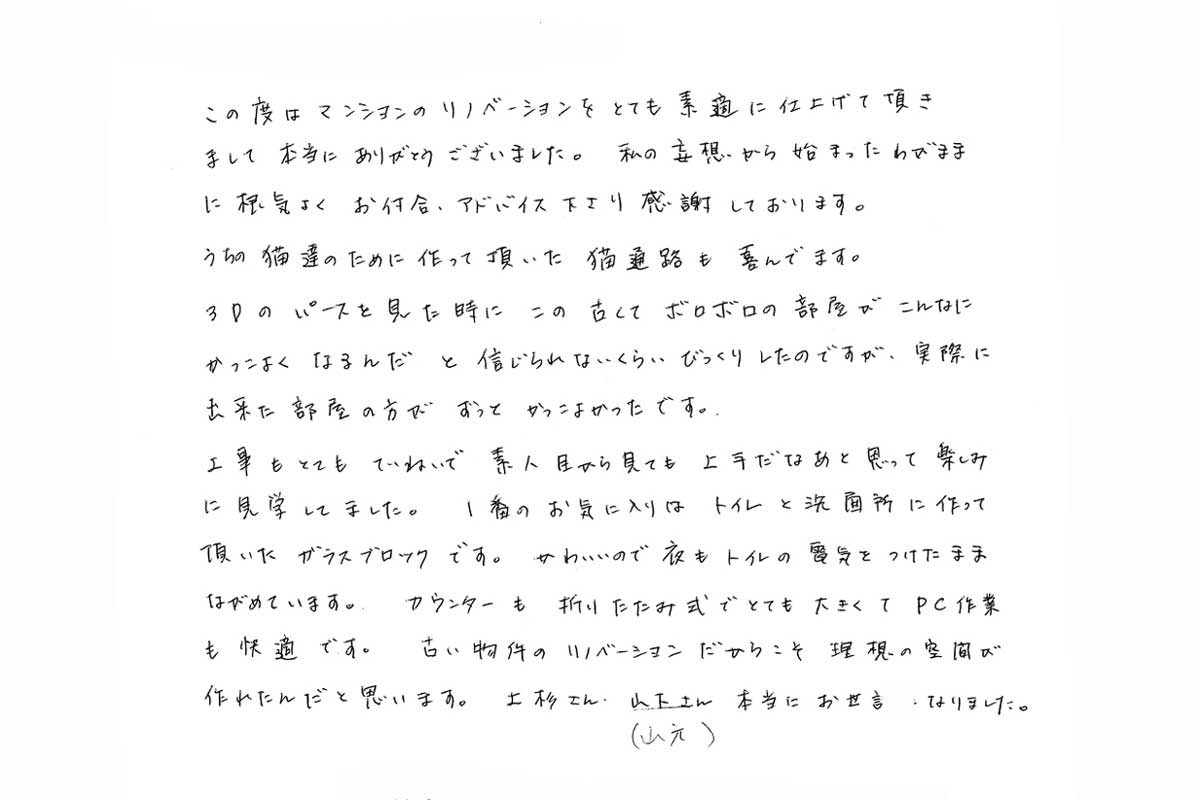 この度は マンションの リノベーションを とても 素適に 仕上げて 頂き
まして 本当に ありがとう ございました。 私の 妄想から 始まった わがまま
に 根気よく お付合、アドバイス 下さり 感謝 しております。
うちの 猫達のために 作って 頂いた 猫通路も 喜んでます。
3Dの パースを 見た時に この 古くて ボロボロの 部屋が こんなに
かっこよく なるんだ と 信じられないくらい びっくりしたのですが、実際に
出来た 部屋の方が ずっと かっこよかったです。
工事も とても ていねいで 素人目から見ても 上手だなあと 思って 楽しみ
に 見学してました。 1番の お気に入りは トイレと 洗面所に 作って
頂いた ガラスブロックです。 かわいいので 夜も トイレの 電気を つけたまま
ながめています。 カウンターも 折りたたみ式で とても 大きくて PC作業
も 快適です。 古い物件の リノベーションだからこそ 理想の空間が
作れたんだと 思います。 上杉さん、山下さん 本当に お世言 なりました。
(山元)